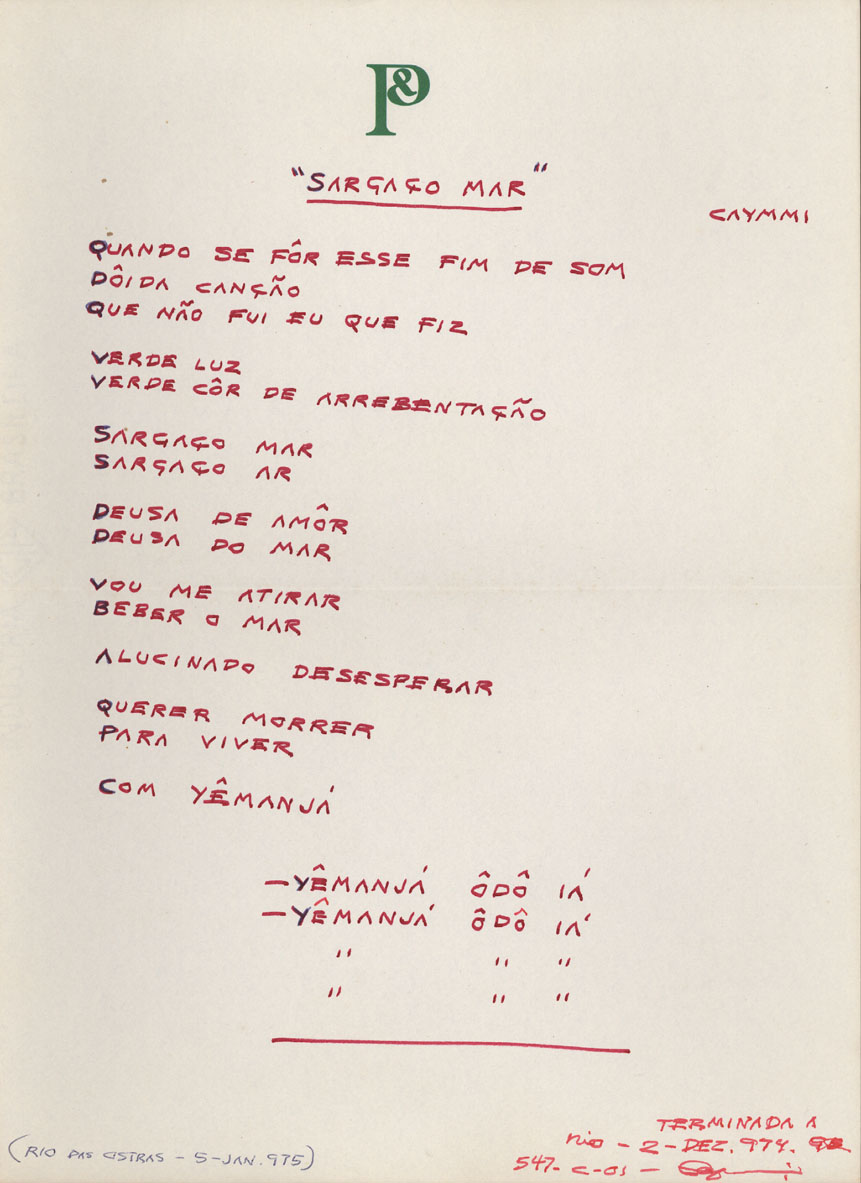 P&
"SARGAÇO MAR"
CAYMMI
QUANDO SE FÔR ESSE FIM DE SOM
DÔIDA CANÇÃO
QUE NÃO FUI EU QUE FIZ
VERDE LUZ
VERDE CÔR DE ARREBENTAÇÃO
SARGAÇO MAR
SARGAÇO AR
DEUSA DE AMÔR
DEUSA DO MAR
VOU ME ATIRAR
BEBER O MAR
ALUCINADO DESESPERAR
QUERER MORRER
PARA VIVER
COM YÊMANJÁ
—YÊMANJÁ ÔDÔ IÁ
—YÊMANJÁ ÔDÔ IÁ
" " "
" " "
TERMINADA A
RIO - 2 - DEZ. 974.
547- C-01 -
(RIO DAS OSTRAS - 5 - JAN. 975)